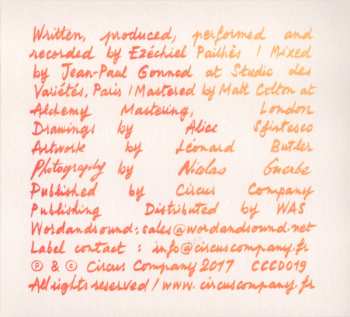 Written, produced, performed and
recorded by Ezéchiel Pailhès / Mixed
by Jean-Paul Gonnod at Studio des
Variétés, Paris / Mastered by Matt Colton at
Alchemy Mastering, London
Drawings by Alice Sfintesco
Artwork by Léonard Butler
Photography by Nicolas Guerbe
Published by Circus Company
Publishing Distributed by WAS
Wordandsound: sales@wordandsound.net
Label contact : info@circuscompany.fr
℗ & © Circus Company 2017 CCCD019
All rights reserved / www.circuscompany.fr